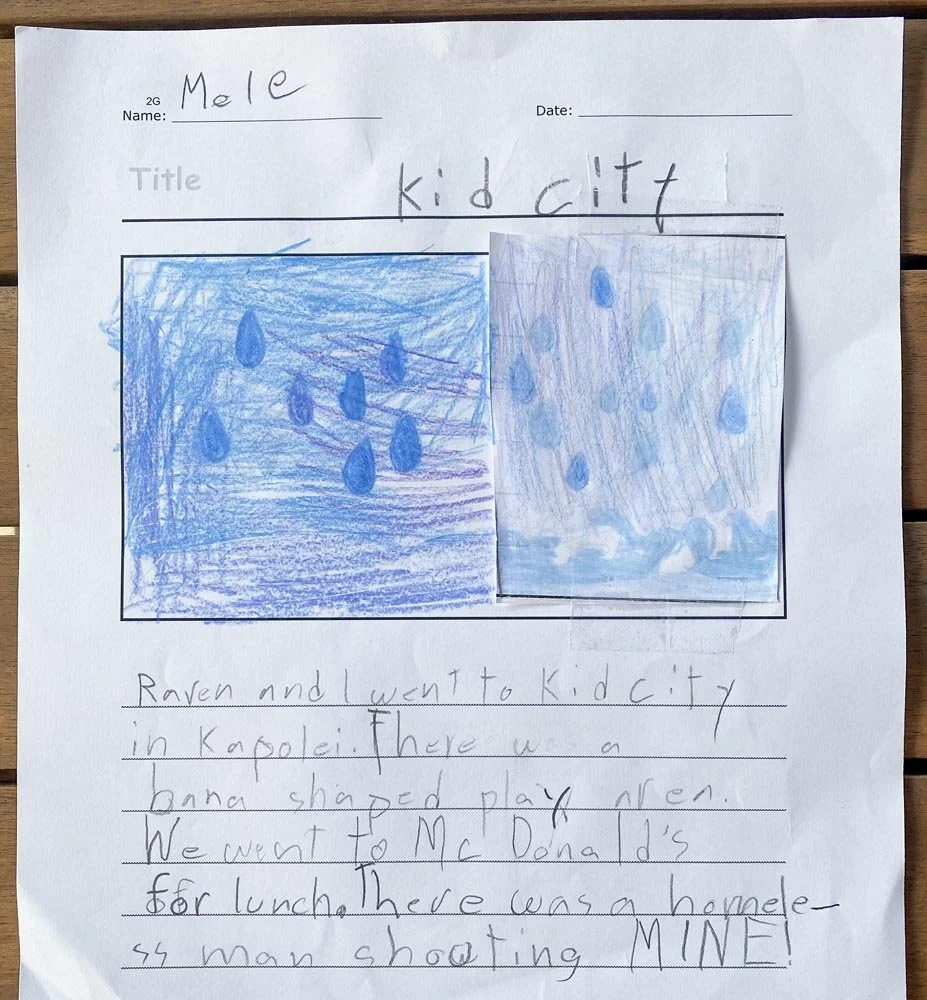 2G
Name: Mele
Date:
Title Kid city
Raven and I went to Kid city
in Kapolei. There was a
bana shaped play aren.
We went to Mc Donald's
for lunch. There was a homele-
ss man shooting MINE!